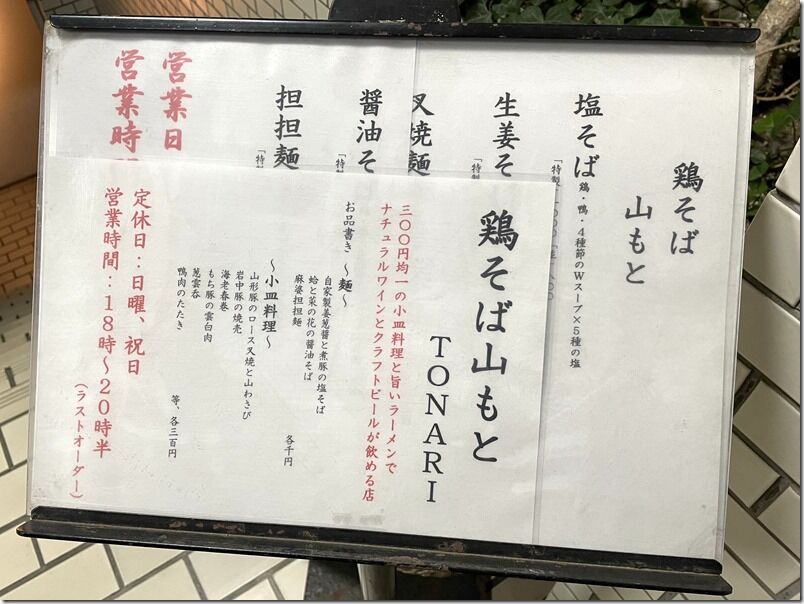 鶏そば
山もと
塩そば 鶏・鴨・4種節のWスープ×5種の塩
「特製
生姜そ
「特製
叉焼麺
醤油そ
「特
担担麺
「特
営業日
営業時
鶏そば山もと
TONARI
三〇〇円均一の小皿料理と旨いラーメンで
ナチュラルワインとクラフトビールが飲める店
お品書き ～麺～
自家製姜葱醤と煮豚の塩そば
蛤と菜の花の醤油そば
麻婆担担麺
各千円
～小皿料理～
山形豚のロース叉焼と山わさび
岩中豚の焼売
海老春巻
もち豚の雲白肉
葱雲呑
鴨肉のたたき
等、各三百円
定休日：日曜、祝日
営業時間：18時～20時半
（ラストオーダー）